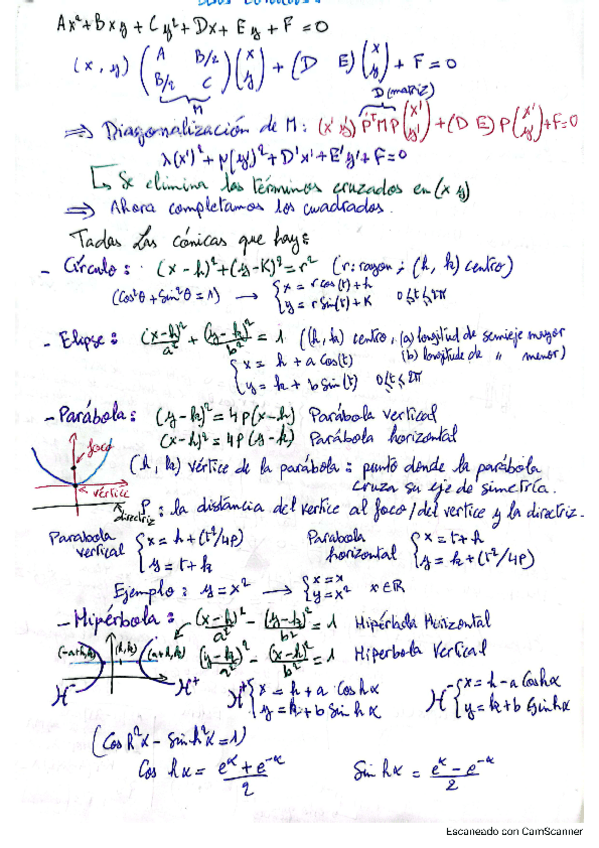 Ax²+Bxy+Cy²+Dx+Ey+F=0
(x, y) (A B/2 B/2 C) (x y) + (D E) (x y) + F=0
M
D(matriz)
⇒ Diagonalización de M: (x' y') PᵀMP (x' y') + (D E) P (x' y') + F=0
λ(x')²+μ(y')²+D'x'+E'y'+F=0
↳ Se elimina los términos cruzados en (x y)
⇒ Ahora completamos los cuadrados.
Todas las cónicas que hay:
- Círculo: (x-h)²+(y-K)²=r² (r: rayon; (h, k) centro)
(Cos²θ+Sin²θ=1) → {x=r cos(t)+h
y=r Sin(t)+K 0≤t≤2π
- Elipse: (x-h)²/a² + (y-k)²/b² = 1 ((h, k) centro, (a) longitud de semieje mayor
(b) longitud de " menor)
{x = h + a Cos(t)
y = k + b Sin(t) 0≤t≤2π
- Parábola: (y-k)² = 4P(x-h) Parábola vertical
(x-h)² = 4P(y-k) Parábola horizontal
foco
(h, k) vértice de la parábola: punto donde la parábola
cruza su eje de simetría.
vértice
directriz
P: la distancia del vertice al foco/del vertice y la directriz.
Parabola vertical {x = h+(t²/4P)
y = t+k
Parabola horizontal {x = t+h
y = k+(t²/4P)
Ejemplo: y=x² → {x=x
y=x² x∈ℝ
- Hipérbola: (x-h)²/a² - (y-k)²/b² = 1 Hipérbola Horizontal
(h,k) (a+h,k)
(y-k)²/a² - (x-h)²/b² = 1 Hiperbola Vertical
H⁻ H⁺
H⁺ {x = h+a Coshα
y = k+b Sinhα
H⁻ {x = h-a Coshα
y = k+b Sinhα
(Cosh²α - Sinh²α = 1)
Cos hα = (e^α + e^-α)/2
Sin hα = (e^α - e^-α)/2
Escaneado con CamScanner